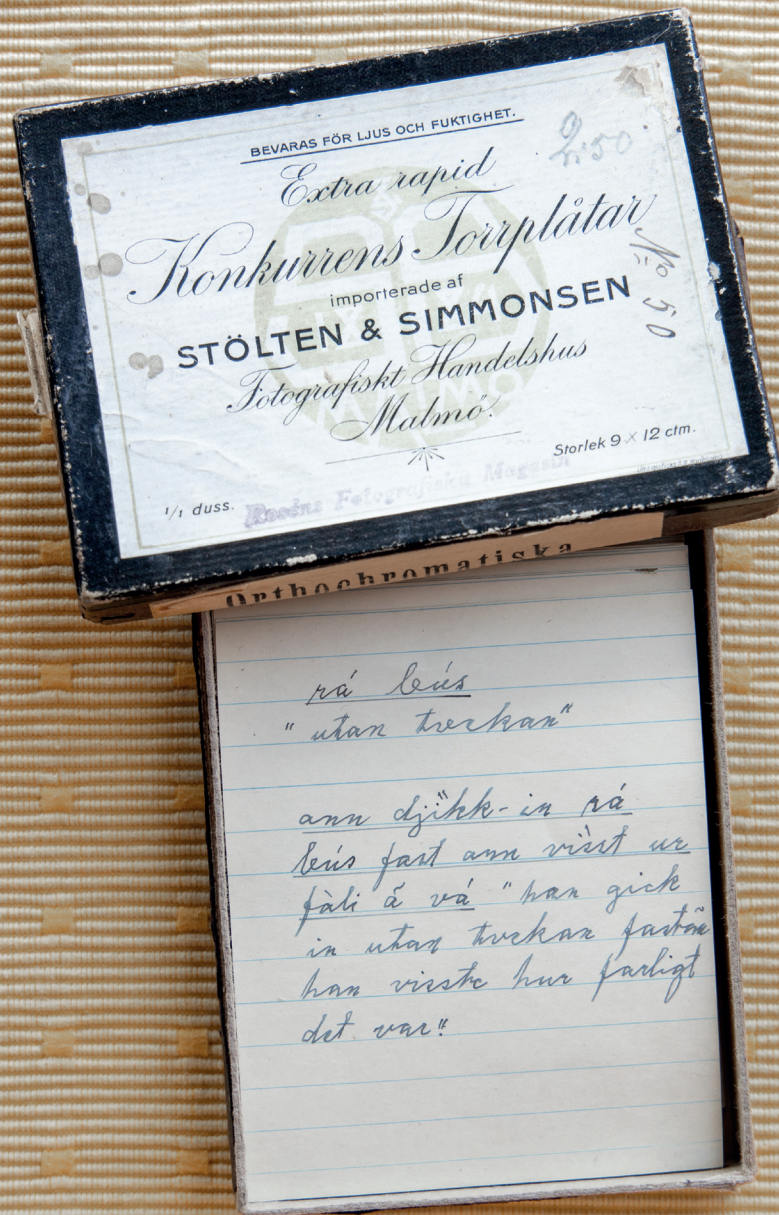 BEVARAS FÖR LJUS OCH FUKTIGHET.
2:50
Extra rapid
Konkurrens Torrplåtar
No 50
importerade af
STÖLTEN & SIMMONSEN
Fotografiskt Handelshus
Malmö.
Storlek 9 × 12 ctm.
1/1 duss.
Roséns Fotografiska Magasin
Orthochromatiska
rá bús
"utan tvekan"
ann djikk-in rá
bús fast ann visst ur
fàli á vá "han gick
in utan tvekan fastän
han visste hur farligt
det var"